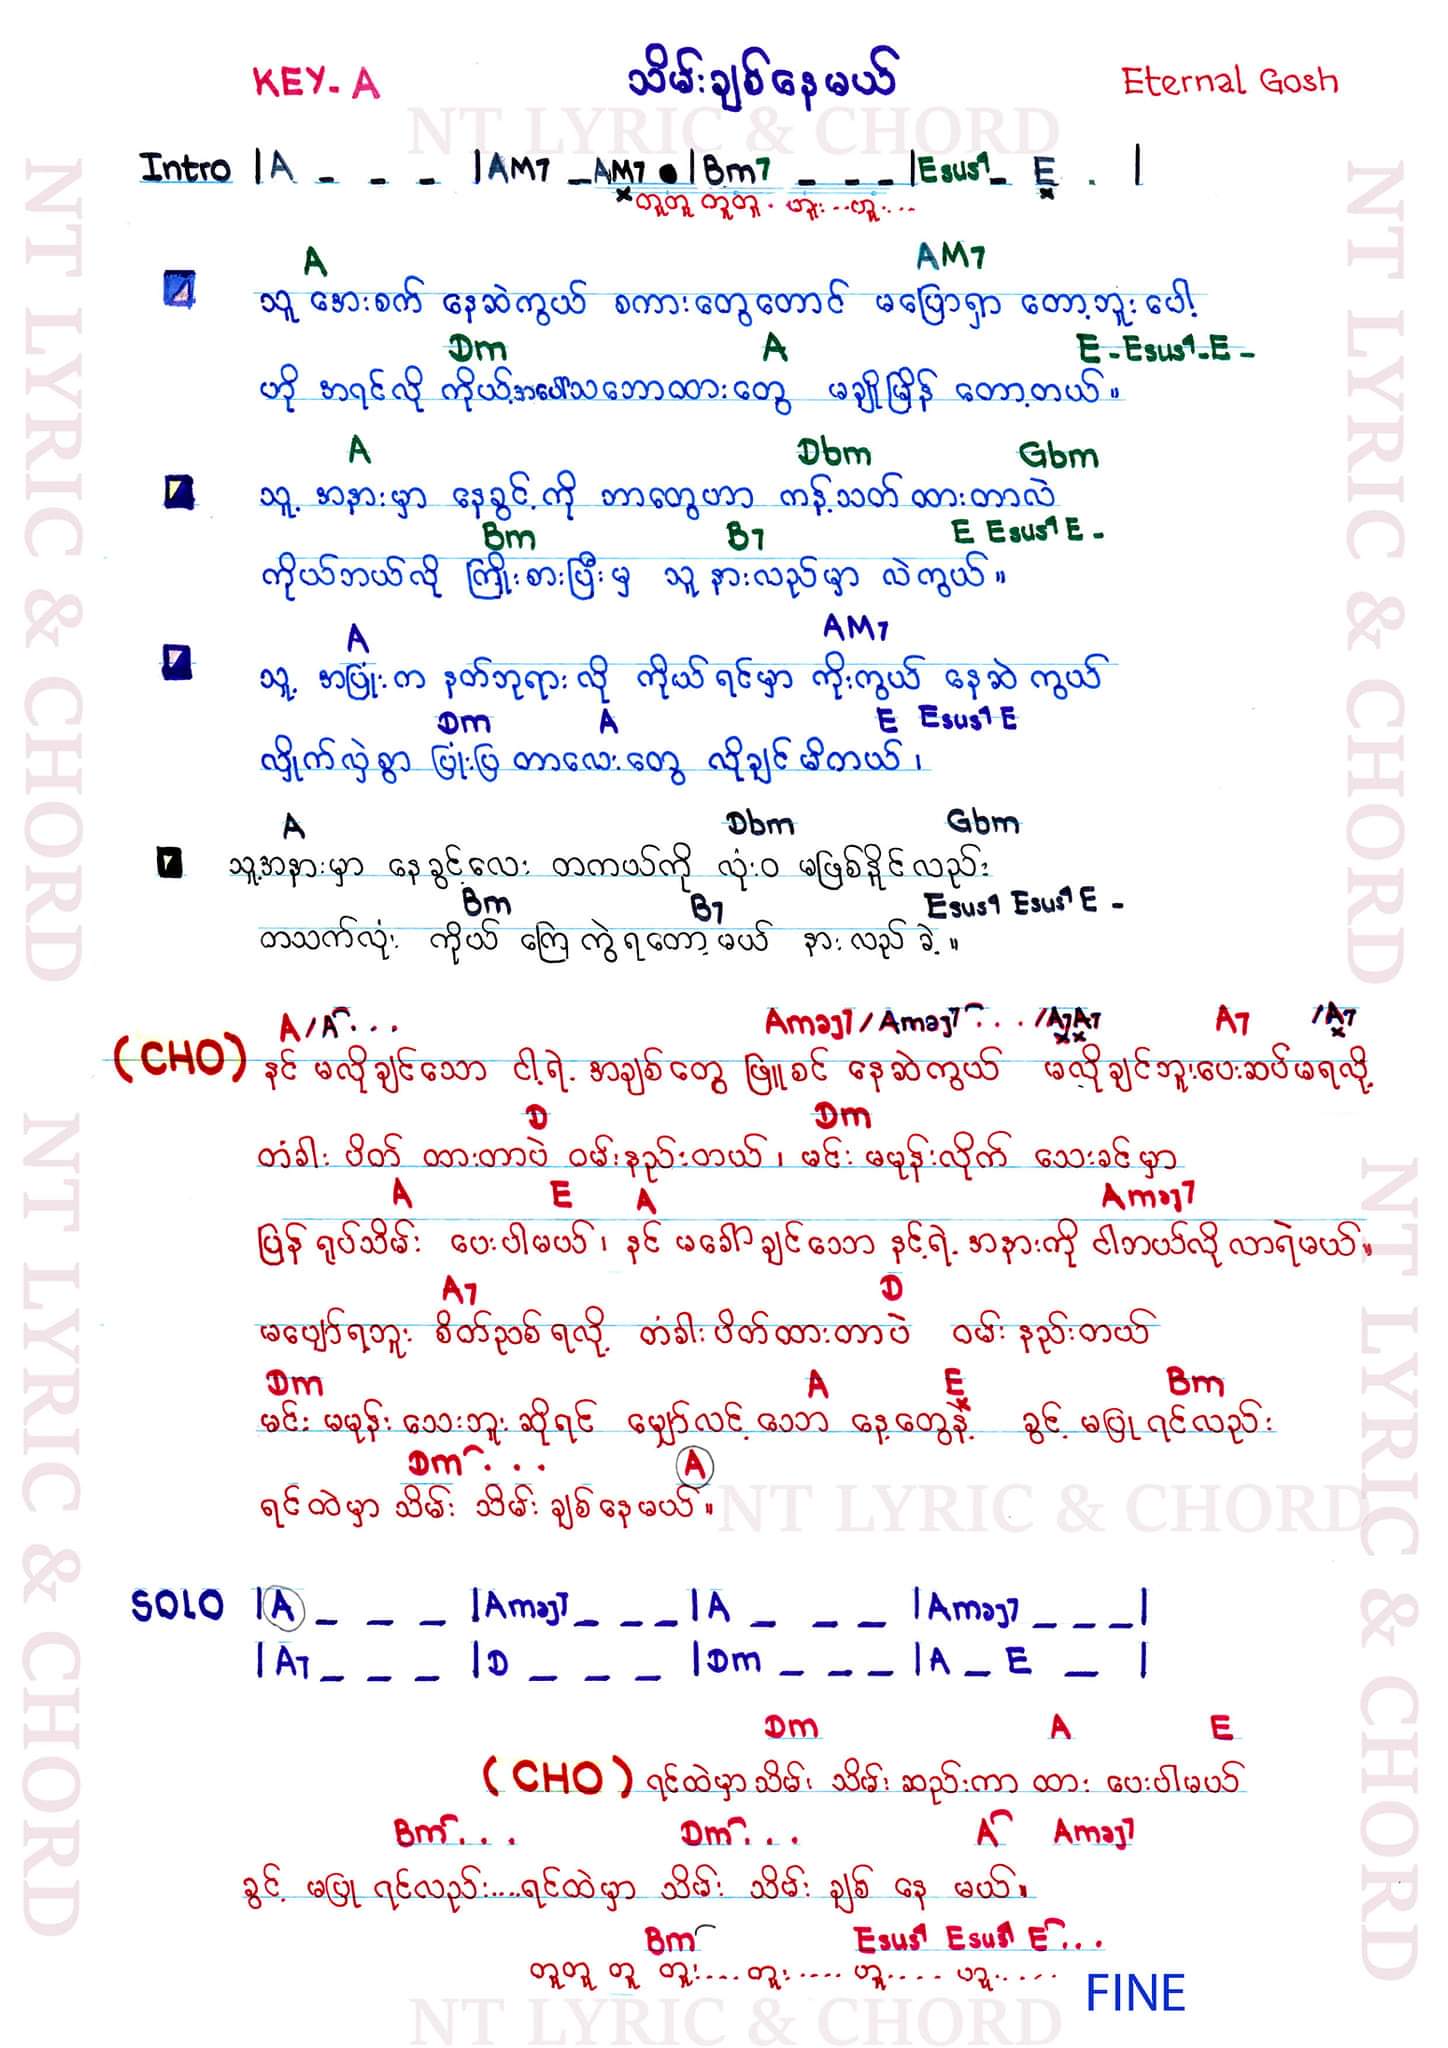 KEY- A သိမ်းချစ်နေမယ် Eternal Gosh
NT LYRIC & CHORD
Intro |A _ _ _ |AM7 _ AM7 • |Bm7 _ _ _ |Esus4 _ E . |
တူတူ တူတူ . ဟူး...ဟူး...
A AM7
သူ အေးစက် နေဆဲကွယ် စကားတွေတောင် မပြောရှာ တော့ဘူးပေါ့
Dm A E-Esus4-E-
ဟို အရင်လို ကိုယ့်အပေါ်သဘောထားတွေ မချိုမြိန် တော့တယ်။
A Dbm Gbm
သူ့ အနားမှာ နေခွင့်ကို ဘာတွေဟာ ကန့်သတ် ထားတာလဲ
Bm B7 E Esus4 E -
ကိုယ်ဘယ်လို ကြိုးစားပြီးမှ သူ နားလည်မှာ လဲကွယ်။
A AM7
သူ့ အပြုံးက နတ်ဘုရားလို ကိုယ်ရင်မှာ ကိုးကွယ် နေဆဲ ကွယ်
Dm A E Esus4 E
လှိုက်လှဲစွာ ပြုံးပြ တာလေးတွေ လိုချင်မိတယ်၊
A Dbm Gbm
သူ့အနားမှာ နေခွင့်လေး တကယ်ကို လုံးဝ မဖြစ်နိုင်လည်း
Bm B7 Esus4 Esus4 E -
တသက်လုံး ကိုယ် ကြေကွဲရတော့မယ် နားလည်ခဲ့။
A/A... Amaj7/Amaj7.../A7A7 A7 /A7
(CHO) နင် မလိုချင်သော ငါ့ရဲ့ အချစ်တွေ ဖြူစင် နေဆဲကွယ် မလိုချင်ဘူးပေးဆပ်မရလို့
D Dm
တံခါး ပိတ် ထားတာပဲ ဝမ်းနည်းတယ်၊ မင်း မမုန်းလိုက် သေးခင်မှာ
A E A Amaj7
ပြန် ရုပ်သိမ်း ပေးပါမယ်၊ နင် မခေါ်ချင်သော နင့်ရဲ့ အနားကို ငါဘယ်လိုလာရဲမယ်။
A7 D
မပျော်ရဘူး စိတ်ညစ်ရလို့ တံခါးပိတ်ထားတာပဲ ဝမ်းနည်းတယ်
Dm A E Bm
မင်း မမုန်း သေးဘူး ဆိုရင် မျှော်လင့်သော နေ့တွေနဲ့ ခွင့် မပြုရင်လည်း
Dm... A
ရင်ထဲမှာ သိမ်း သိမ်း ချစ်နေမယ်။
NT LYRIC & CHORD
SOLO |A _ _ _ |Amaj7 _ _ _ |A _ _ _ |Amaj7 _ _ _ |
|A7 _ _ _ |D _ _ _ |Dm _ _ _ |A _ E _ |
Dm A E
(CHO) ရင်ထဲမှာသိမ်း သိမ်းဆည်းကာ ထား ပေးပါမယ်
Bm... Dm... A Amaj7
ခွင့် မပြု ရင်လည်း....ရင်ထဲမှာ သိမ်း သိမ်း ချစ် နေ မယ်။
Bm Esus4 Esus4 E...
တူတူ တူ တူး....တူး.... ဟူ.... ဟူ.....
FINE
NT LYRIC & CHORD
NT LYRIC & CHORD
NT LYRIC & CHORD
NT LYRIC & CHORD
NT LYRIC & CHORD